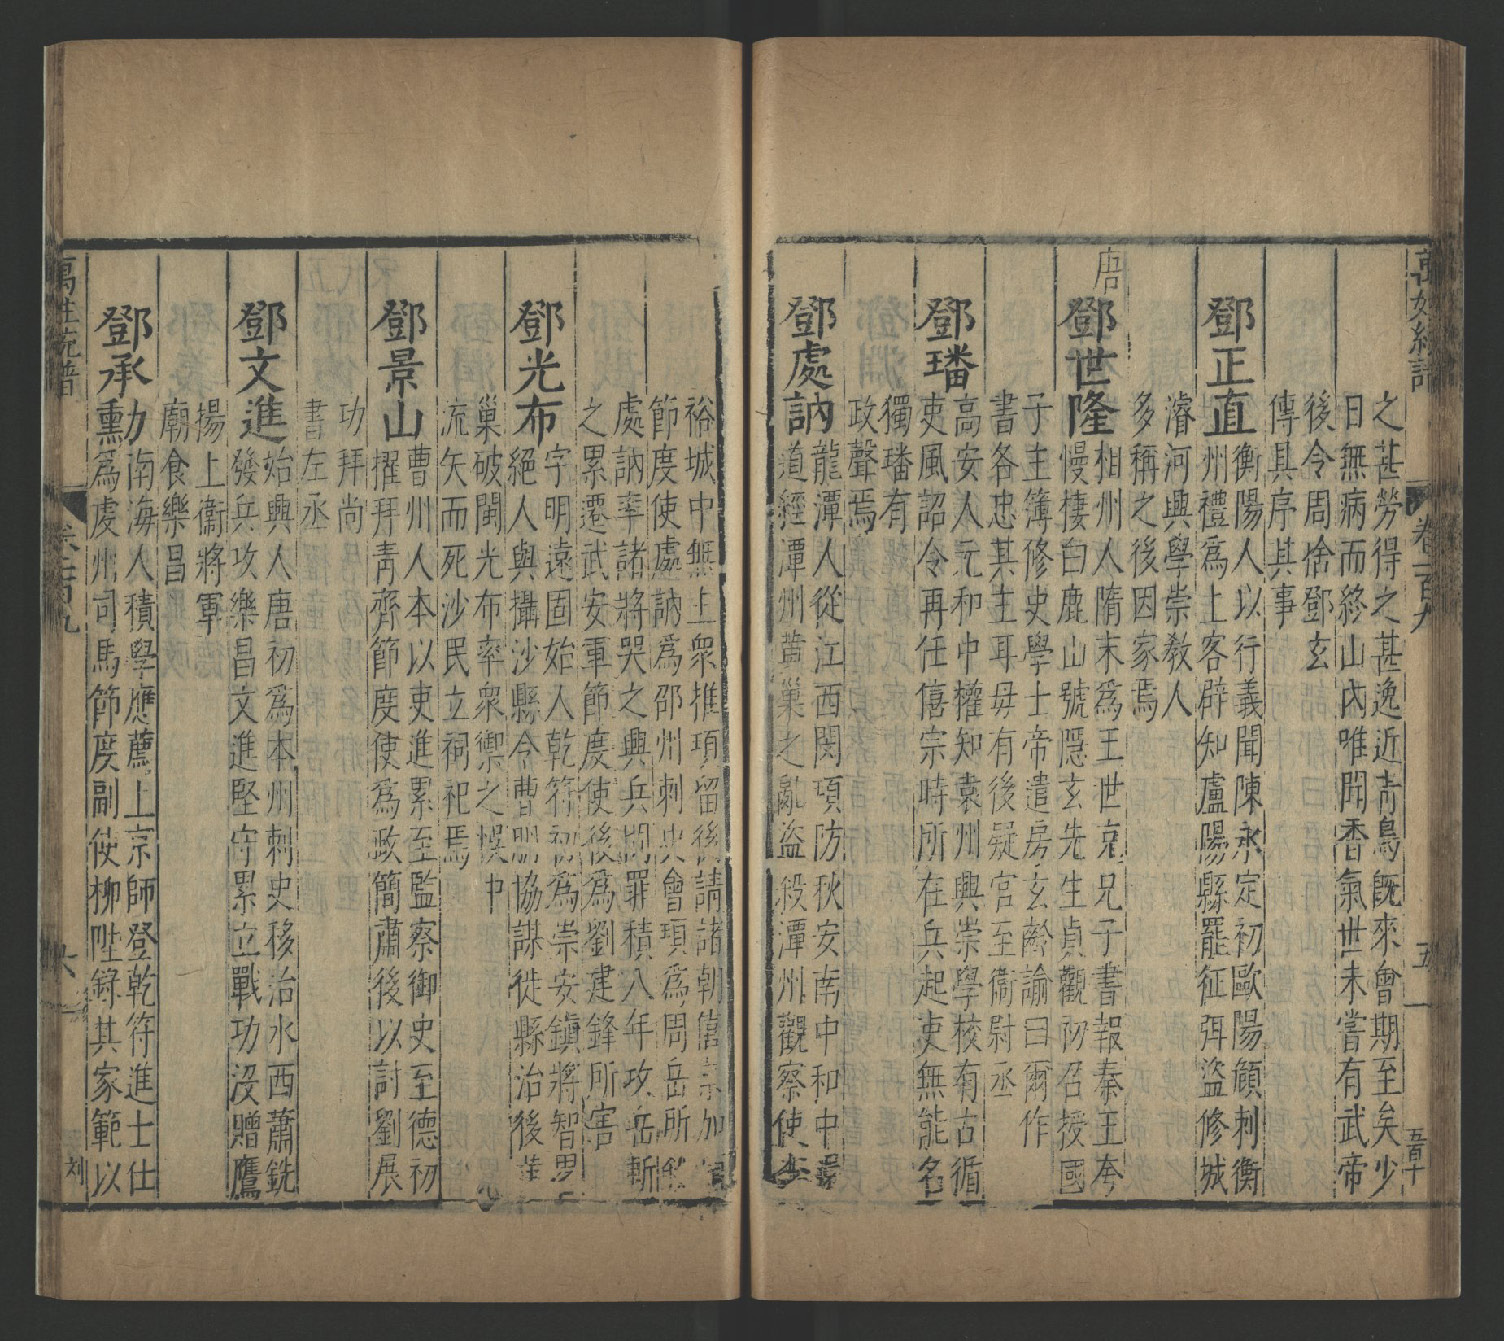 之甚勞得之甚逸近青鳥旣來會期至矣少
日無病而終山內唯聞香氣世未嘗有武帝
後令周捨鄧玄
傳具序其事
鄧正直
衡陽人以行義聞陳永定初歐陽頠刺衡
州禮爲上客辟知盧陽縣罷征弭盜修城
濬河興學崇教人
多稱之後因家焉
唐
鄧世隆
相州人隋末爲王世充兄子書報秦王夸
慢棲白鹿山號隱玄先生貞觀初召授國
子主簿修史學士帝遣房玄齡諭曰爾作
書各忠其主耳毋有後疑官至衞尉丞
鄧璠
高安人元和中權知袁州興崇學校有古循
吏風詔令再任僖宗時所在兵起吏無能名
獨璠有
政聲焉
鄧處訥
龍潭人從江西閔項防秋安南中和中還
道經潭州黃巢之亂盜殺潭州觀察使李
裕城中無主衆推項留後請諸朝僖宗加
節度使處訥爲邵州刺史會項爲周岳所
處訥率諸將哭之興兵問罪積八年攻岳斬
之累遷武安軍節度使後爲劉建鋒所害
鄧光布
字明遠固始人乾符初爲崇安鎮將智畧
絕人與攝沙縣令曹朋協謀徙縣治後黃
巢破閩光布率衆禦之悞中
流矢而死沙民立祠祀焉
鄧景山
曹州人本以吏進累至監察御史至德初
擢拜青齊節度使爲政簡肅後以討劉展
功拜尚
書左丞
鄧文進
始興人唐初爲本州刺史移治水西蕭銑
發兵攻樂昌文進堅守累立戰功沒贈鷹
揚上衞將軍
廟食樂昌
鄧承勳
力南海人積學應薦上京師登乾符進士仕
爲虔州司馬節度副使柳陞錄其家範以
萬姓統譜
卷一百九
五
五百十
萬姓統譜
卷一百九
六
刘